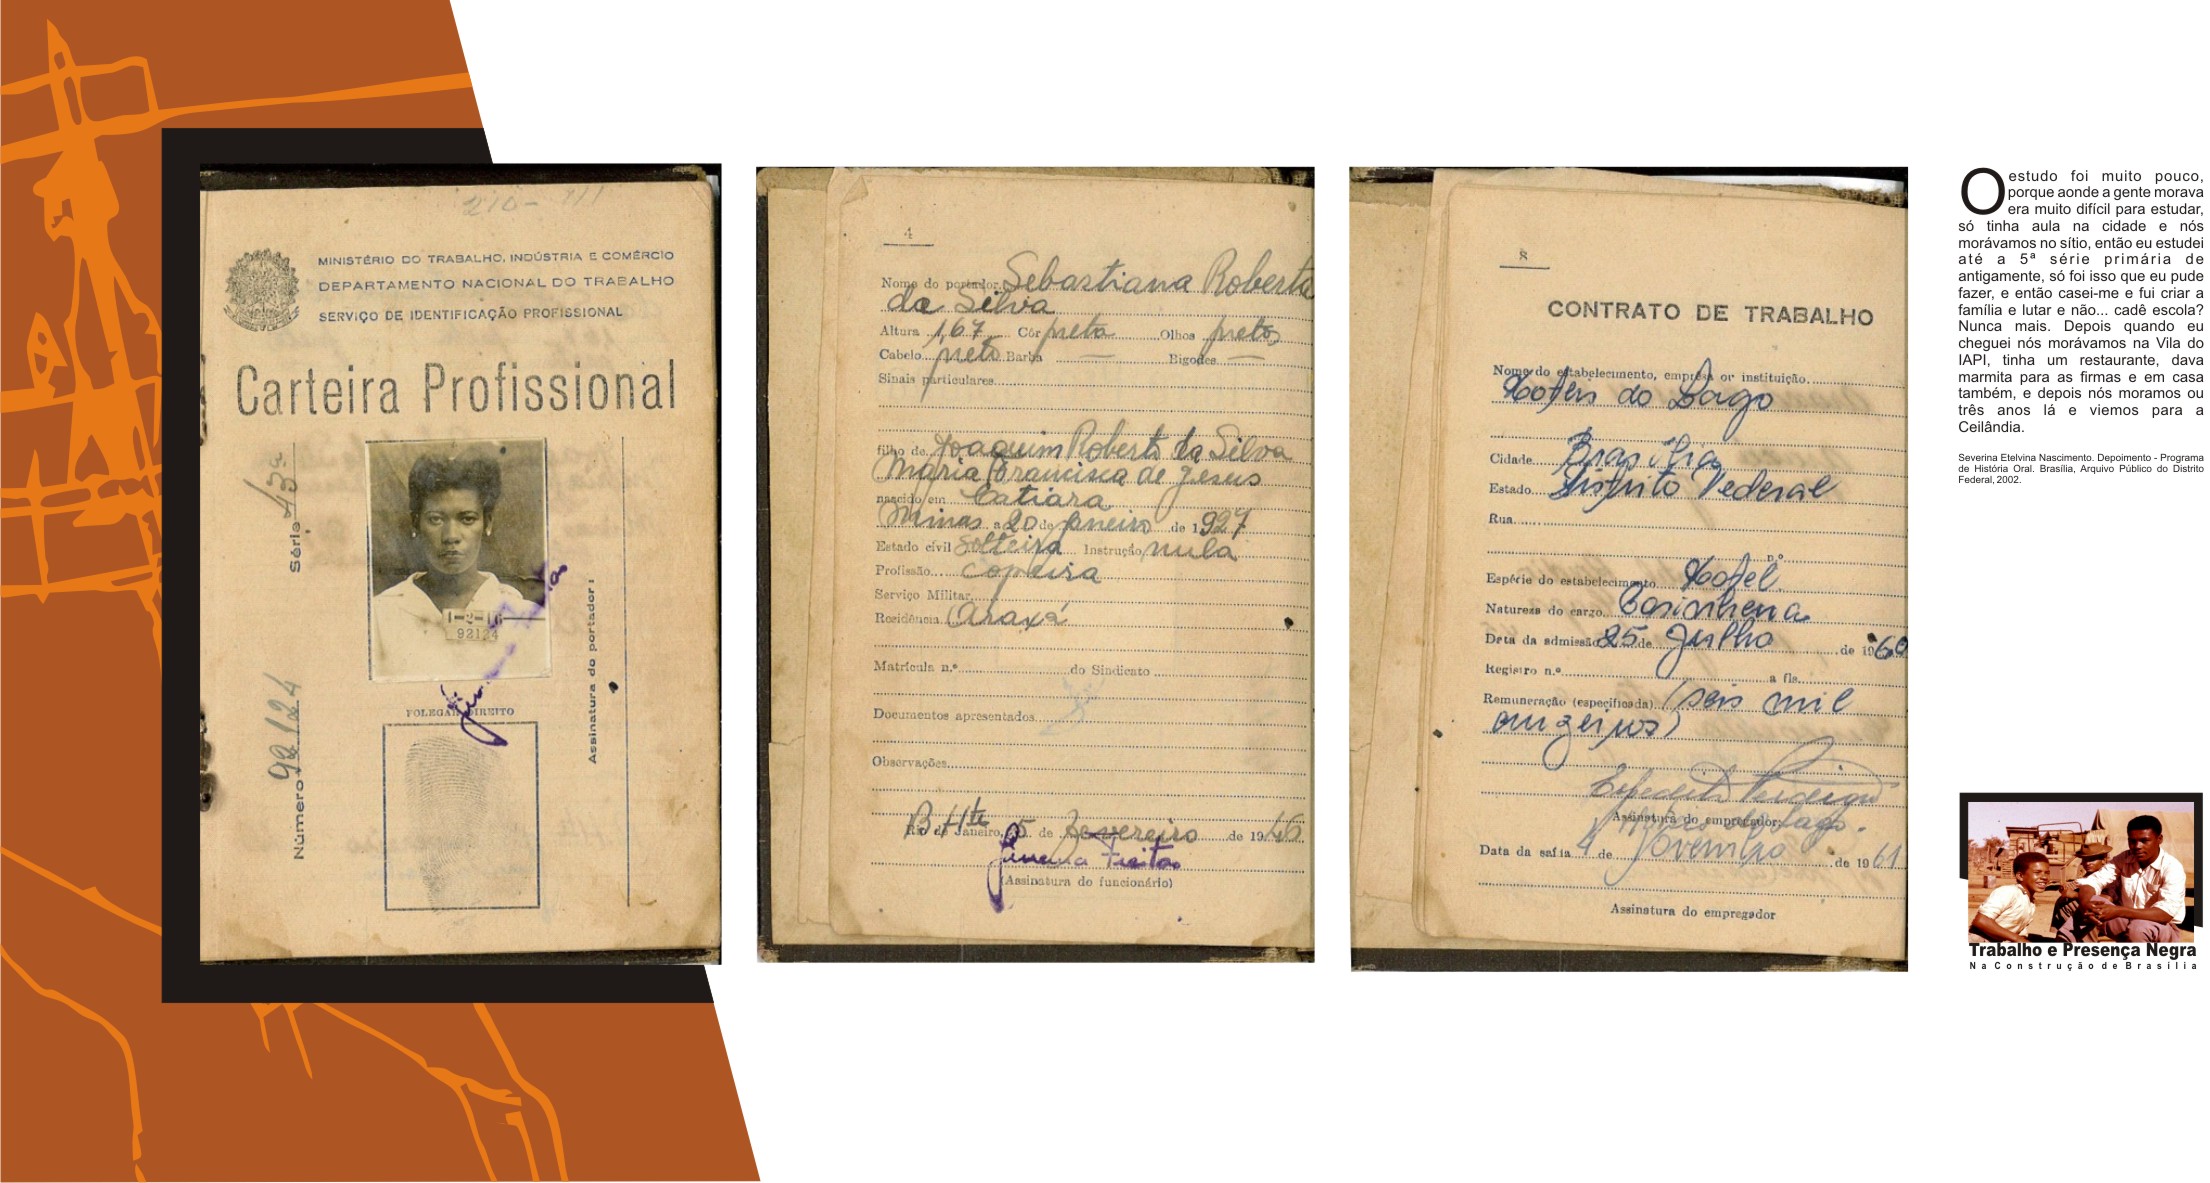 210-
MINISTÉRIO DO TRABALHO, INDÚSTRIA E COMÉRCIO
DEPARTAMENTO NACIONAL DO TRABALHO
SERVIÇO DE IDENTIFICAÇÃO PROFISSIONAL
Carteira Profissional
Série 43ª
Número 92124
1-2-46
92124
Assinatura do portador:
POLEGAR DIREITO
4
Nome do portador Sebastiana Roberta
da Silva
Altura 1,67 Côr preta Olhos pretos
Cabelo preto Barba — Bigodes —
Sinais particulares
filho de Joaquim Roberto da Silva
Maria Francisca de Jesus
nascido em Catiara
Minas a 20 de Janeiro de 1927
Estado civil solteira Instrução nula
Profissão copeira
Serviço Militar
Residência Araxá
Matrícula n.º do Sindicato
Documentos apresentados
Observações
B Hte
Rio de Janeiro, 5 de Fevereiro de 1946
Freitas
(Assinatura do funcionário)
8
CONTRATO DE TRABALHO
Nome do estabelecimento, empresa or instituição
Hoteis do Lago
Cidade Brasilia
Estado Distrito Federal
Rua
n.º
Espécie do estabelecimento Hotel
Natureza do cargo Cosinhena
Data da admissão 25 de Julho de 1960
Registro n.º a fls.
Remuneração (especificada) (seis mil
cruzeiros)
Assinatura do empregador
Data da saíia 4 de Novembro de 1961
Assinatura do empregador
O estudo foi muito pouco,
porque aonde a gente morava
era muito difícil para estudar,
só tinha aula na cidade e nós
morávamos no sítio, então eu estudei
até a 5ª série primária de
antigamente, só foi isso que eu pude
fazer, e então casei-me e fui criar a
família e lutar e não... cadê escola?
Nunca mais. Depois quando eu
cheguei nós morávamos na Vila do
IAPI, tinha um restaurante, dava
marmita para as firmas e em casa
também, e depois nós moramos ou
três anos lá e viemos para a
Ceilândia.
Severina Etelvina Nascimento. Depoimento - Programa
de História Oral. Brasília, Arquivo Público do Distrito
Federal, 2002.
Trabalho e Presença Negra
Na Construção de Brasília